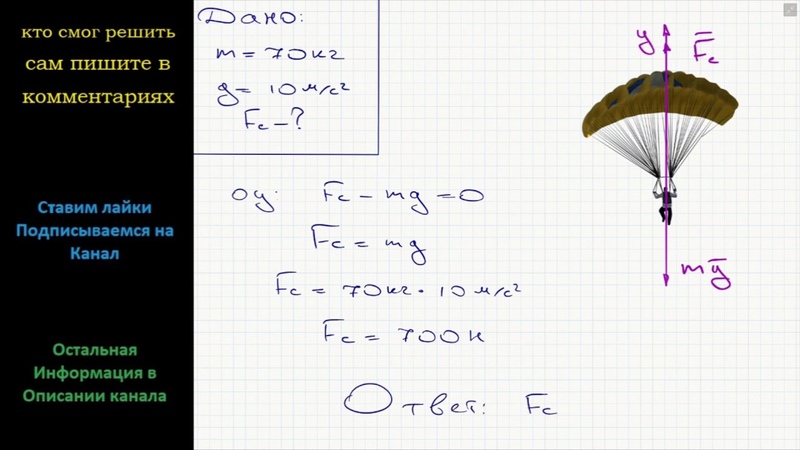 кто смог решить
сам пишите в
комментариях
Ставим лайки
Подписываемся на
Канал
Остальная
Информация в
Описании канала
Дано:
m = 70 кг
g = 10 м/с²
Fc - ?
oy: Fc - mg = 0
Fc = mg
Fc = 70 кг · 10 м/с²
Fc = 700 Н
Ответ: Fc
y F̅c
mg̅